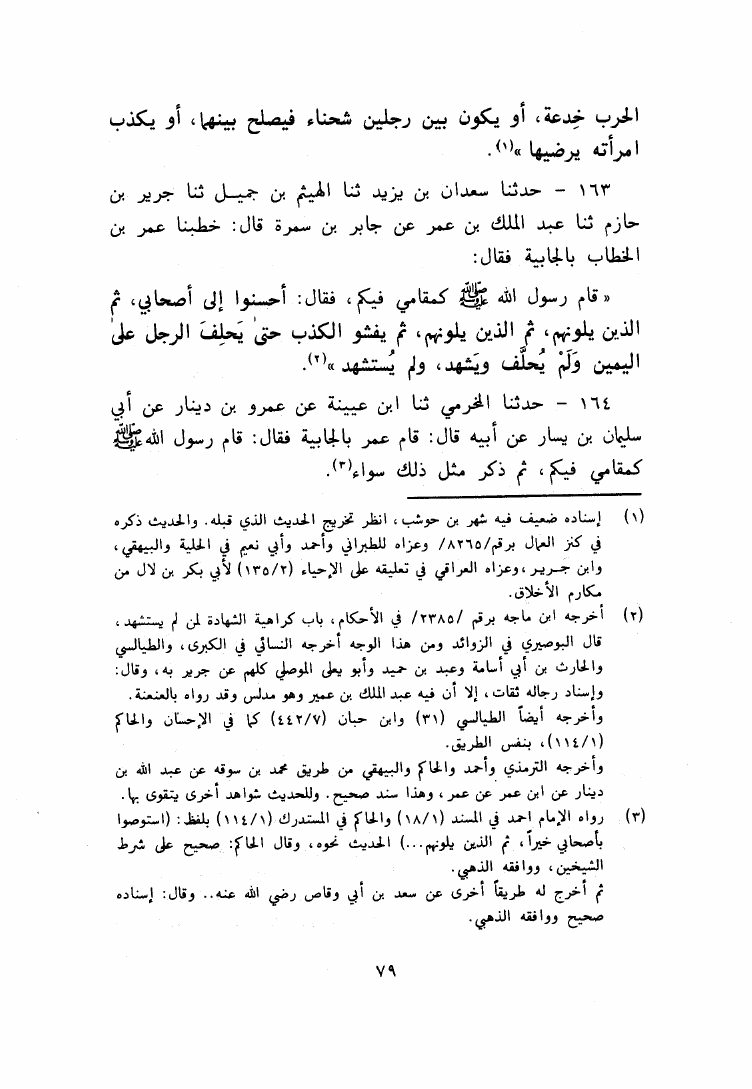 الحرب خِدعة، أو يكون بين رجلين شحناء فيصلح بينهما، أو يكذب
امرأته يرضيها »(١).
١٦٣ - حدثنا سعدان بن يزيد ثنا الهيثم بن جميـل ثنا جرير بن
حازم ثنا عبد الملك بن عمر عن جابر بن سمرة قال: خطبنا عمر بن
الخطاب بالجابية فقال:
« قام رسول الله ﷺ كمقامي فيكم، فقال: أحسنوا إلى أصحابي، ثم
الذين يلونهم، ثم الذين يلونهم، ثم يفشو الكذب حتىٰ يَحلِفَ الرجل علىٰ
اليمين وَلَمْ يُحلَّف ويَشهد، ولم يُستشهد »(٢).
١٦٤ - حدثنا المخرمي ثنا ابن عيينة عن عمرو بن دينار عن أبي
سليمان بن يسار عن أبيه قال: قام عمر بالجابية فقال: قام رسول الله ﷺ
كمقامي فيكم، ثم ذكر مثل ذلك سواء(٣).
(١) إسناده ضعيف فيه شهر بن حوشب، انظر تخريج الحديث الذي قبله. والحديث ذكره
في كنز العمال برقم/٨٢٦٥/ وعزاه للطبراني وأحمد وأبي نعيم في الحلية والبيهقي،
وابن جـرير، وعزاه العراقي في تعليقه على الإحياء (١٣٥/٢) لأبي بكر بن لال من
مكارم الأخلاق.
(٢) أخرجه ابن ماجه برقم /٢٣٨٥/ في الأحكام، باب كراهية الشهادة لمن لم يستشهد،
قال البوصيري في الزوائد ومن هذا الوجه أخرجه النسائي في الكبرى، والطيالسي
والحارث بن أبي أسامة وعبد بن حميد وأبو يعلى الموصلي كلهم عن جرير به، وقال:
وإسناد رجاله ثقات، إلا أن فيه عبد الملك بن عمير وهو مدلس وقد رواه بالعنعنة.
وأخرجه أيضاً الطيالسي (٣١) وابن حبان (٤٤٢/٧) كما في الإحسان والحاكم
(١١٤/١)، بنفس الطريق.
وأخرجه الترمذي وأحمد والحاكم والبيهقي من طريق محمد بن سوقه عن عبد الله بن
دينار عن ابن عمر عن عمر، وهذا سند صحيح. وللحديث شواهد أخرى يتقوى بها.
(٣) رواه الإمام احمد في المسند (١٨/١) والحاكم في المستدرك (١١٤/١) بلفظ: (استوصوا
بأصحابي خيراً، ثم الذين يلونهم...) الحديث نحوه، وقال الحاكم: صحيح على شرط
الشيخين، ووافقه الذهبي.
ثم أخرج له طريقاً أخرى عن سعد بن أبي وقاص رضي الله عنه.. وقال: إسناده
صحيح ووافقه الذهبي.
٧٩